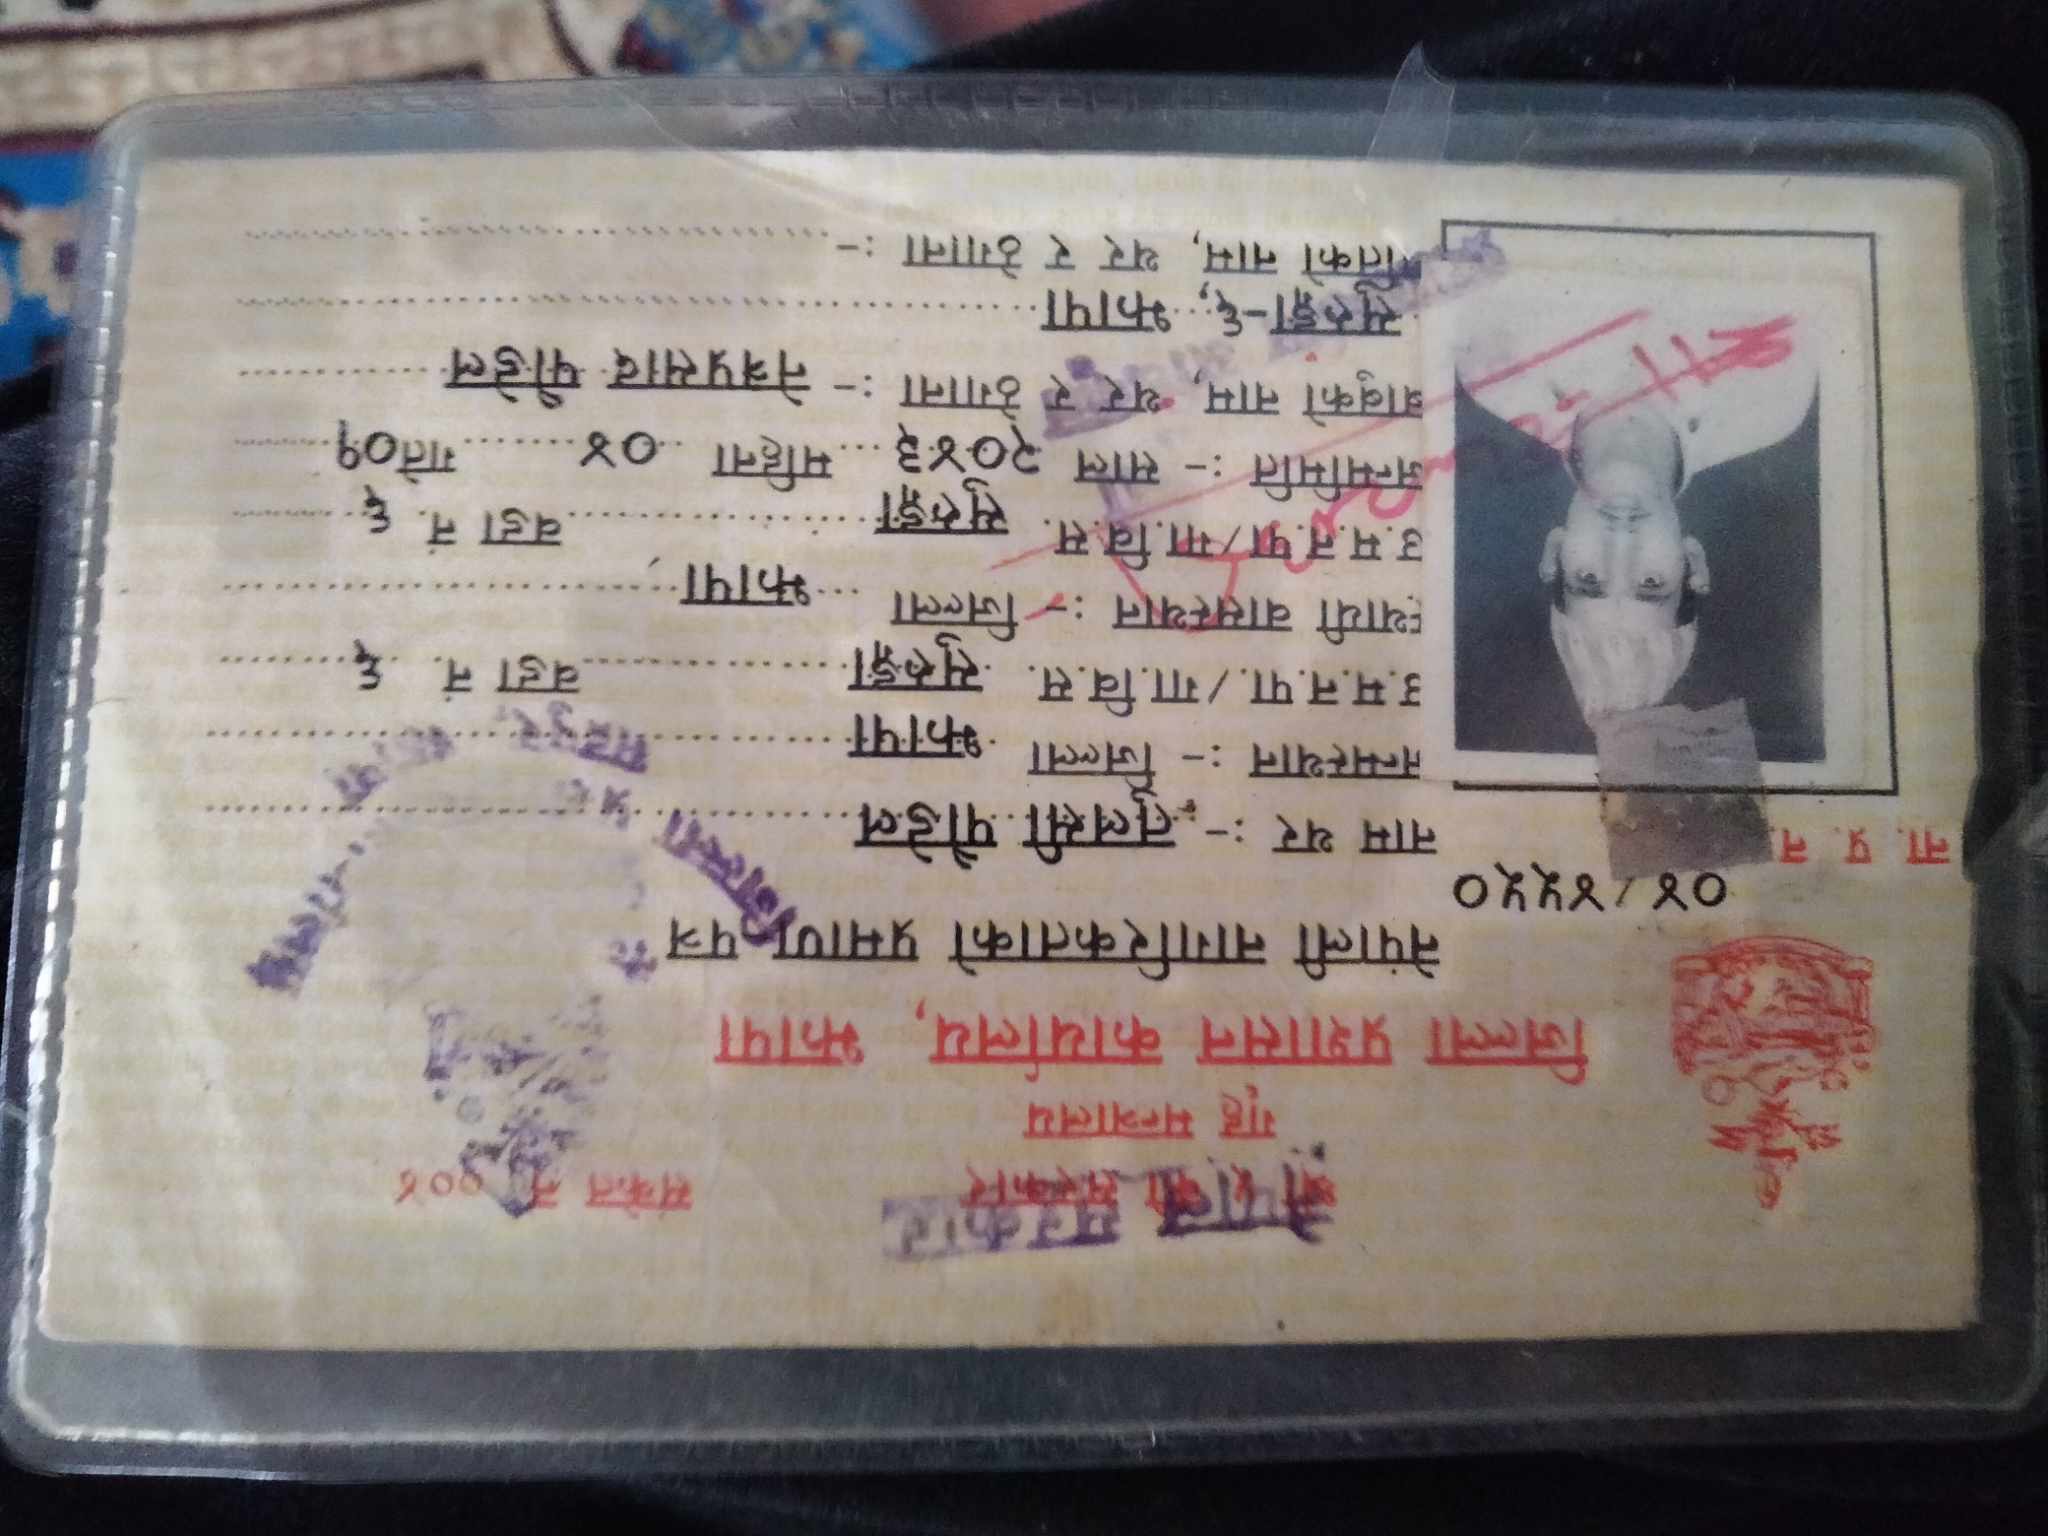 श्री ५ को सरकार
नेपाल सरकार
संकेत नं. ००४
गृह मन्त्रालय
जिल्ला प्रशासन कार्यालय, झापा
नेपाली नागरिकताको प्रमाण पत्र
०४/४५५०
ना. प्र. नं.
नाम थर :- तुलसी पौडेल
जन्मस्थान :- जिल्ला झापा
उ.म.न.पा./गा.वि.स. सुरुङ्गा वडा नं ६
स्थायी वासस्थान :- जिल्ला झापा
उ.म.न.पा/गा.वि.स. सुरुङ्गा वडा नं. ६
जन्ममिति :- साल २०४३ महिना ०४ गते ०१
बाबुको नाम, थर र ठेगाना :- नेत्रप्रसाद पौडेल
सुरुङ्गा-६, झापा
पतिको नाम, थर र ठेगाना :-